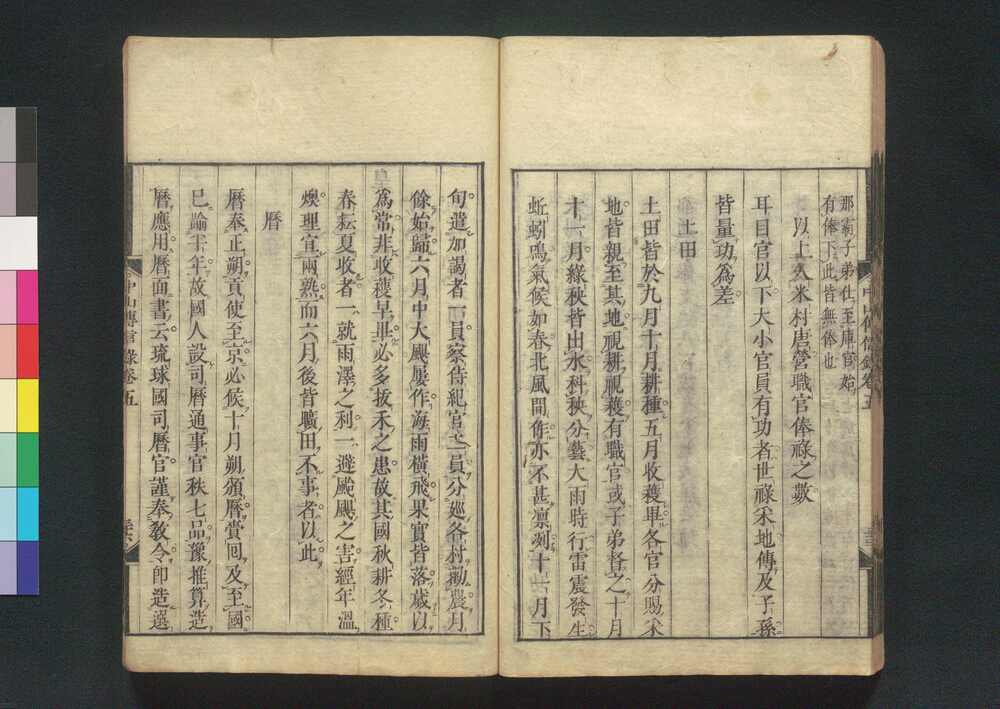 中山傳信錄卷五
那霸子弟仕至庫官始
有俸下此皆無俸也
以上久米村唐營職官俸祿之數
耳目官以下大小官員有功者世祿采地傳及子孫
皆量功爲差
土田
土田皆於九月十月耕種五月收穫畢各官分賜采
地皆親至其地視耕視穫有職官或子弟督之十月
十一月綠秧皆出水科秧分藝大雨時行雷震發生
蚯蚓鳴氣候如春北風間作亦不甚凛冽十一月下
旬遣加謁者一員察侍紀官二員分廵各村勸農月
餘始歸六月中大颶屢作海雨橫飛果實皆落歲以
爲常非收穫早畢必多拔禾之患故其國秋耕冬種
春耘夏收者一就雨澤之利一避颱颶之害經年溫
燠理宜兩熟而六月後皆曠田不事者以此
曆
曆奉正朔貢使至京必候十月朔頒曆賞回及至國
已踰半年故國人設司曆通事官秩七品豫推算造
曆應用曆面書云琉球國司曆官謹奉敎令卽造選
中山傳信錄卷五